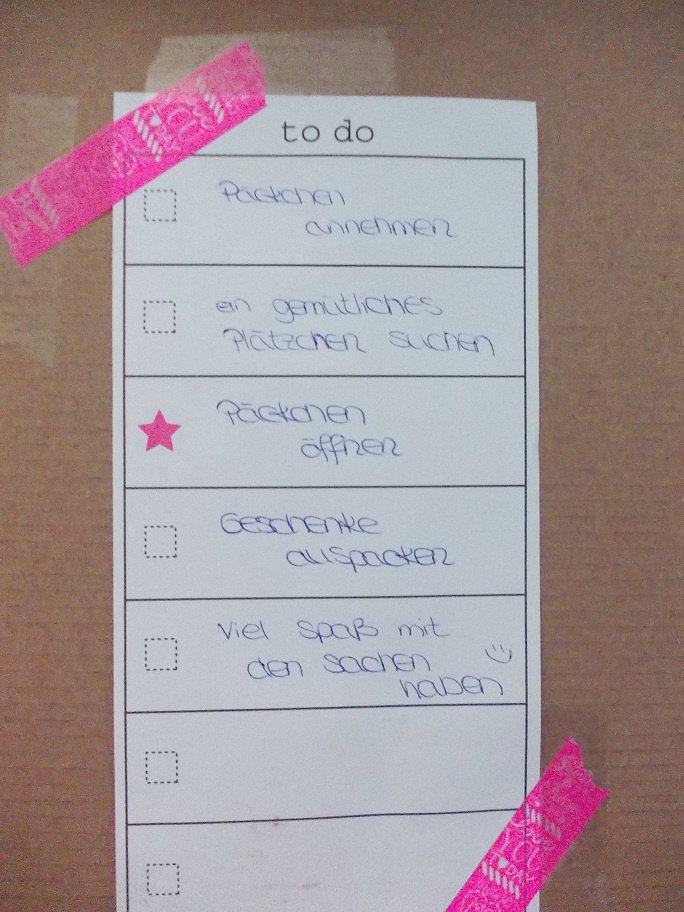 to do
Päckchen
annehmen
ein gemütliches
Plätzchen suchen
Päckchen
öffnen
Geschenke
auspacken
Viel Spaß mit
den Sachen
haben